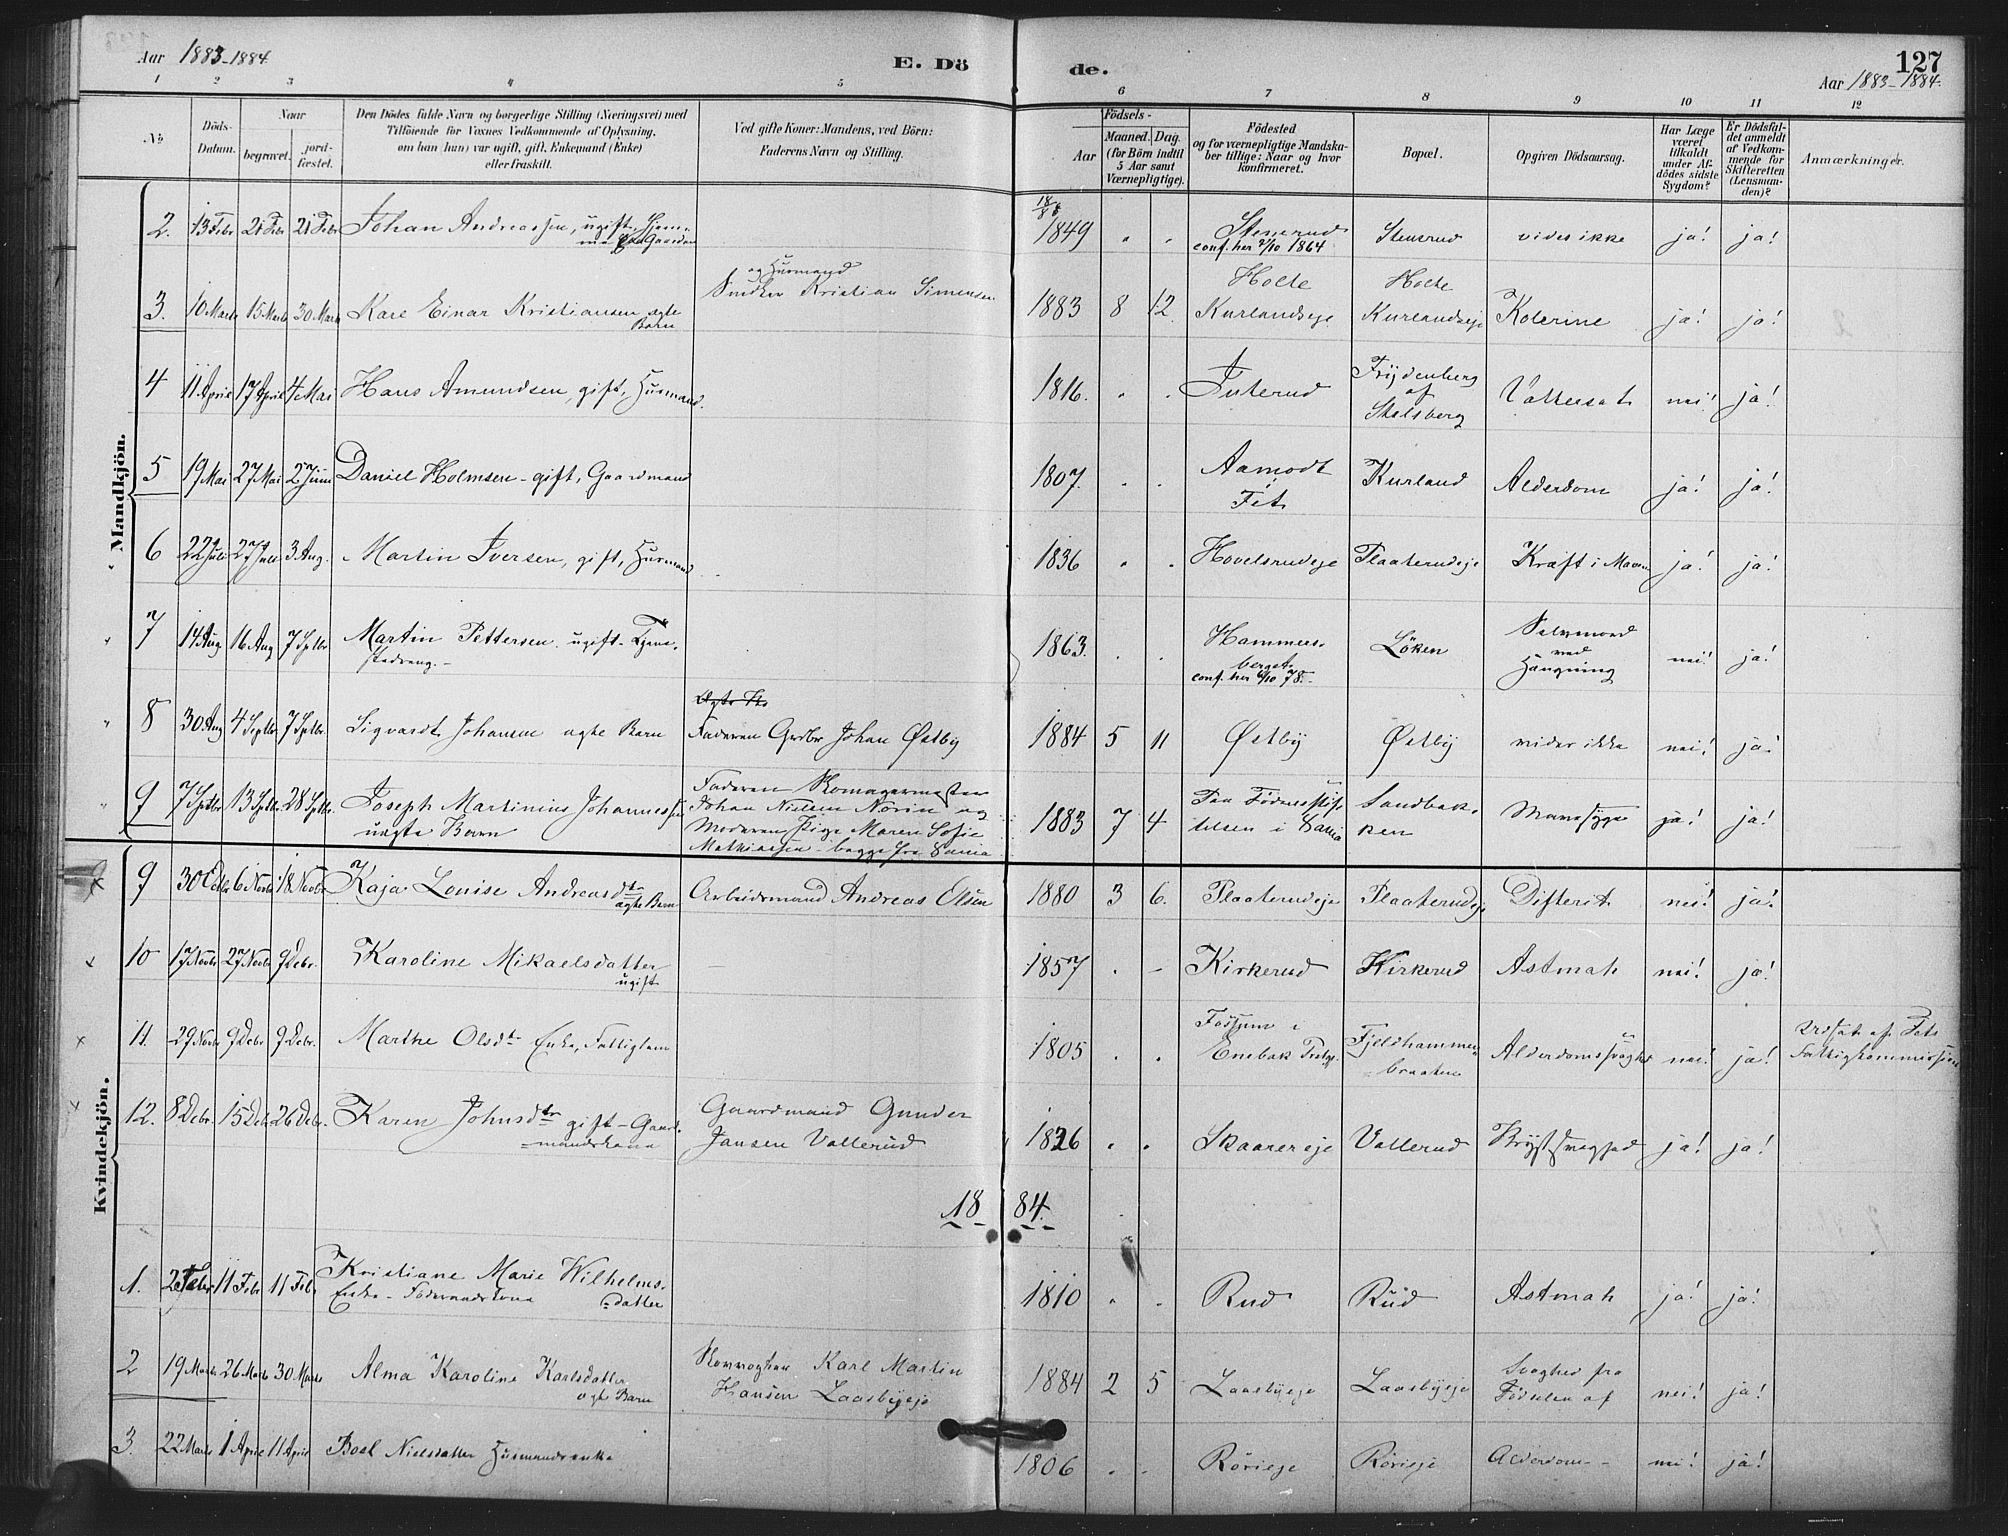 Aar 1883-1884
E. Dö de.
127
Aar 1883-1884.
1 2 3 4 5 6 7 8 9 10 11 12
No
Döds-Datum.
Naar
begravet.
jord-fæstet.
Den Dödes fulde Navn og borgerlige Stilling (Næringsvei) med
Tilföiende for Voxnes Vedkommende af Oplysning,
om han (hun) var ugift, gift, Enkemand (Enke)
eller fraskilt.
Ved gifte Koner: Mandens, ved Börn:
Faderens Navn og Stilling.
Födsels-
Aar
Maaned. Dag.
(for Börn indtil
5 Aar samt
Værnepligtige).
Födested
og for værnepligtige Mandska-
ber tillige: Naar og hvor
konfirmeret.
Bopæl.
Opgiven Dödsaarsag.
Har Læge
været
tilkaldt
under Af-
dödes sidste
Sygdom?
Er Dödsfal-
det anmeldt
af Vedkom-
mende for
Skifteretten
(Lensman-
den)?
Anmærkninger.
Mandkjön.
2. 13 Febr 21 Febr 21 Febr Johan Andreassen, ugift, Hjem-
me paa Gaarden
1849 " " Stensrud
conf. her 2/10 1864
Stensrud vides ikke ja! ja!
3. 10 Marts 15 Marts 30 Marts Kare Einar Kristiansen ægte
Barn
og Husmand
Snedker Kristian Simensen
1883 8 12. Holte
Kurlandseje
Holte
Kurlandseje
Kolerine ja! ja!
4 11 April 17 April 4 Mai Hans Amundsen, gift, Husmand.
1816. " " Tuterud
Frydenberg
af
Skalsberg
Vattersot nei! ja!
5 19 Mai 27 Mai 2 Juni Daniel Holmsen - gift, Gaardmand
1807. " " Aamodt
Fet
Kurland Alderdom ja! ja!
6 22 Juli 27 Juli 3 Aug. Martin Iversen, gift, Husmand
1836 " " Hovelsrudeje Plaaterudeje Kræft i Maven ja! ja!
7 14 Aug 16 Aug 7 Sptbr Martin Pettersen ugift - Tjene-
stedreng. -
1863. " " Hammers-
berget.
conf. her 6/10 78. -
Löken
Selvmord
ved
Hængning
nei! ja!
8 30 Aug 4 Septbr 7 Sptbr. Sigvardt Johansen ægte Barn
Faderen Grdbr Johan Østby
1884 5 11 Østby Østby vides ikke nei! ja!
9 7 Sptbr 13 Sptbr. 28 Sptbr. Joseph Martinius Johannessen
uægte Barn
Faderen Skomagermester
Johan Nielsen Norin og
Moderen Pige Maren Sofie
Mathiassen - begge fra Xania
1883 7 4 Paa Födselsstif-
telsen i Xania
Sandbak-
ken
Mavesyge ja! ja!
Kvindekjön.
9 30 Octbr 6 Novbr 18 Novbr Kaja Louise Andreasdtr
ægte Barn
Arbeidsmand Andreas Olsen
1880 3 6. Plaaterudeje Plaaterudeje Difterit nei! ja!
10 17 Novbr 27 Novbr 9 Debr. Karoline Mikaelsdatter
ugift
1857 " - Kirkerud Kirkerud Astmah nei! ja!
11. 29 Novbr 9 Debr 9 Debr. Marthe Olsdtr Enke, Fattiglem
1805 " " Fossum i
Enebak Prstgj.
Fjeldhammer-
braaten
Alderdomssvaghed nei! ja!
Udsat af Fets
Fattigkommission
12. 8 Debr. 15 Debr 26 Debr. Karen Johnsdtr gift - Gaard-
mandskone
Gaardmand Gunder
Jansen Vallerud
1826 " " Skaarereje Vallerud Brystsvaghed ja! ja!
18 84.
1. 2 Febr 11 Febr 11 Febr Kristiane Marie Wilhelms-
Enke - Föderaadskone datter
1810 " " Rud Rud Astmah ja! ja!
2 19 Marts 26 Marts 30 Marts Alma Karoline Karlsdatter
ægte Barn
Karl Martin
Hansen Laasbyeje
1884 2 5 Laasbyeje Laasbyeje
Svaghed fra
Födselen af
nei! ja!
3. 22 Marts 1 April 11 April Boel Nielsdatter Husmandsenke
1806 " " Röriseje Röriseje Alderdom - nei! ja!